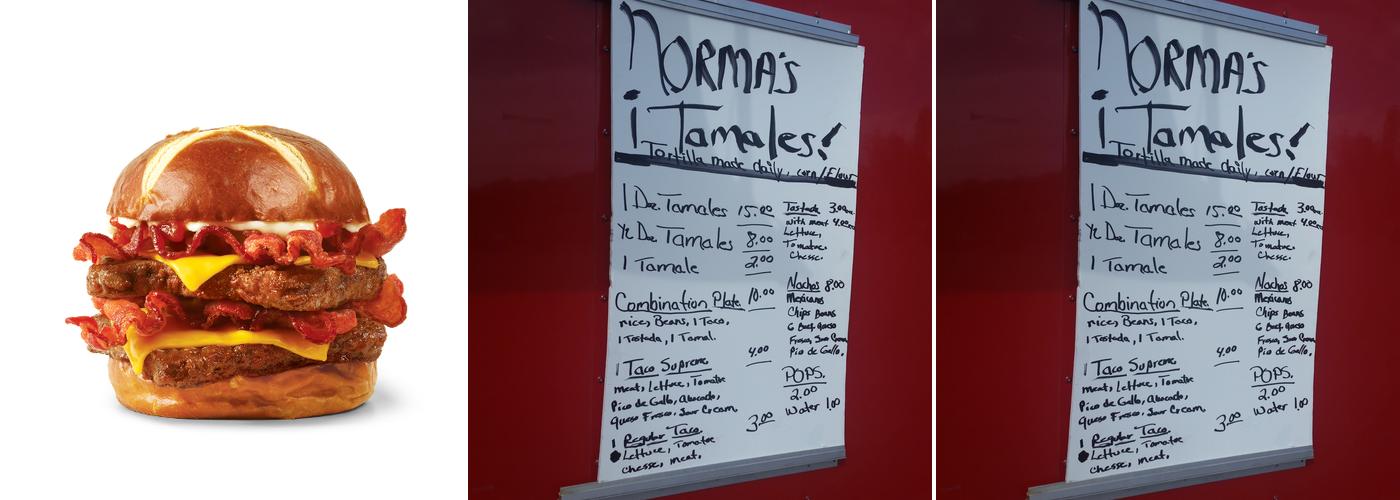 NORMA'S
¡Tamales!
Tortilla made daily, corn/Flour
1 Dz. Tamales 15.00
½ Dz Tamales 8.00
1 Tamale 2.00
Combination Plate 10.00
rice, Beans, 1 Taco,
1 Tostada, 1 Tamal.
1 Taco Supreme 4.00
meat, Lettuce, Tomatoe
Pico de Gallo, Abocado,
queso Fresco, Sour Cream,
1 Regular Taco 3.00
Lettuce, Tomatoe
chesse, meat.
Tostada 3.00
with meat
Lettuce,
Tomatoe
chesse.
Nachos 8.00
Mexicans
Chips Beans
Queso
Fresco, Sour Cream
Pio de Gallo,
POPS.
2.00
Water 1.00
NORMA'S
¡Tamales!
Tortilla made daily, corn/Flour
1 Dz. Tamales 15.00
½ Dz Tamales 8.00
1 Tamale 2.00
Combination Plate 10.00
rice, Beans, 1 Taco,
1 Tostada, 1 Tamal.
1 Taco Supreme 4.00
meat, Lettuce, Tomatoe
Pico de Gallo, Abocado,
queso Fresco, Sour Cream,
1 Regular Taco 3.00
Lettuce, Tomatoe
chesse, meat.
Tostada 3.00
with meat
Lettuce,
Tomatoe
chesse.
Nachos 8.00
Mexicans
Chips Beans
Queso
Fresco, Sour Cream
Pio de Gallo,
POPS.
2.00
Water 1.00